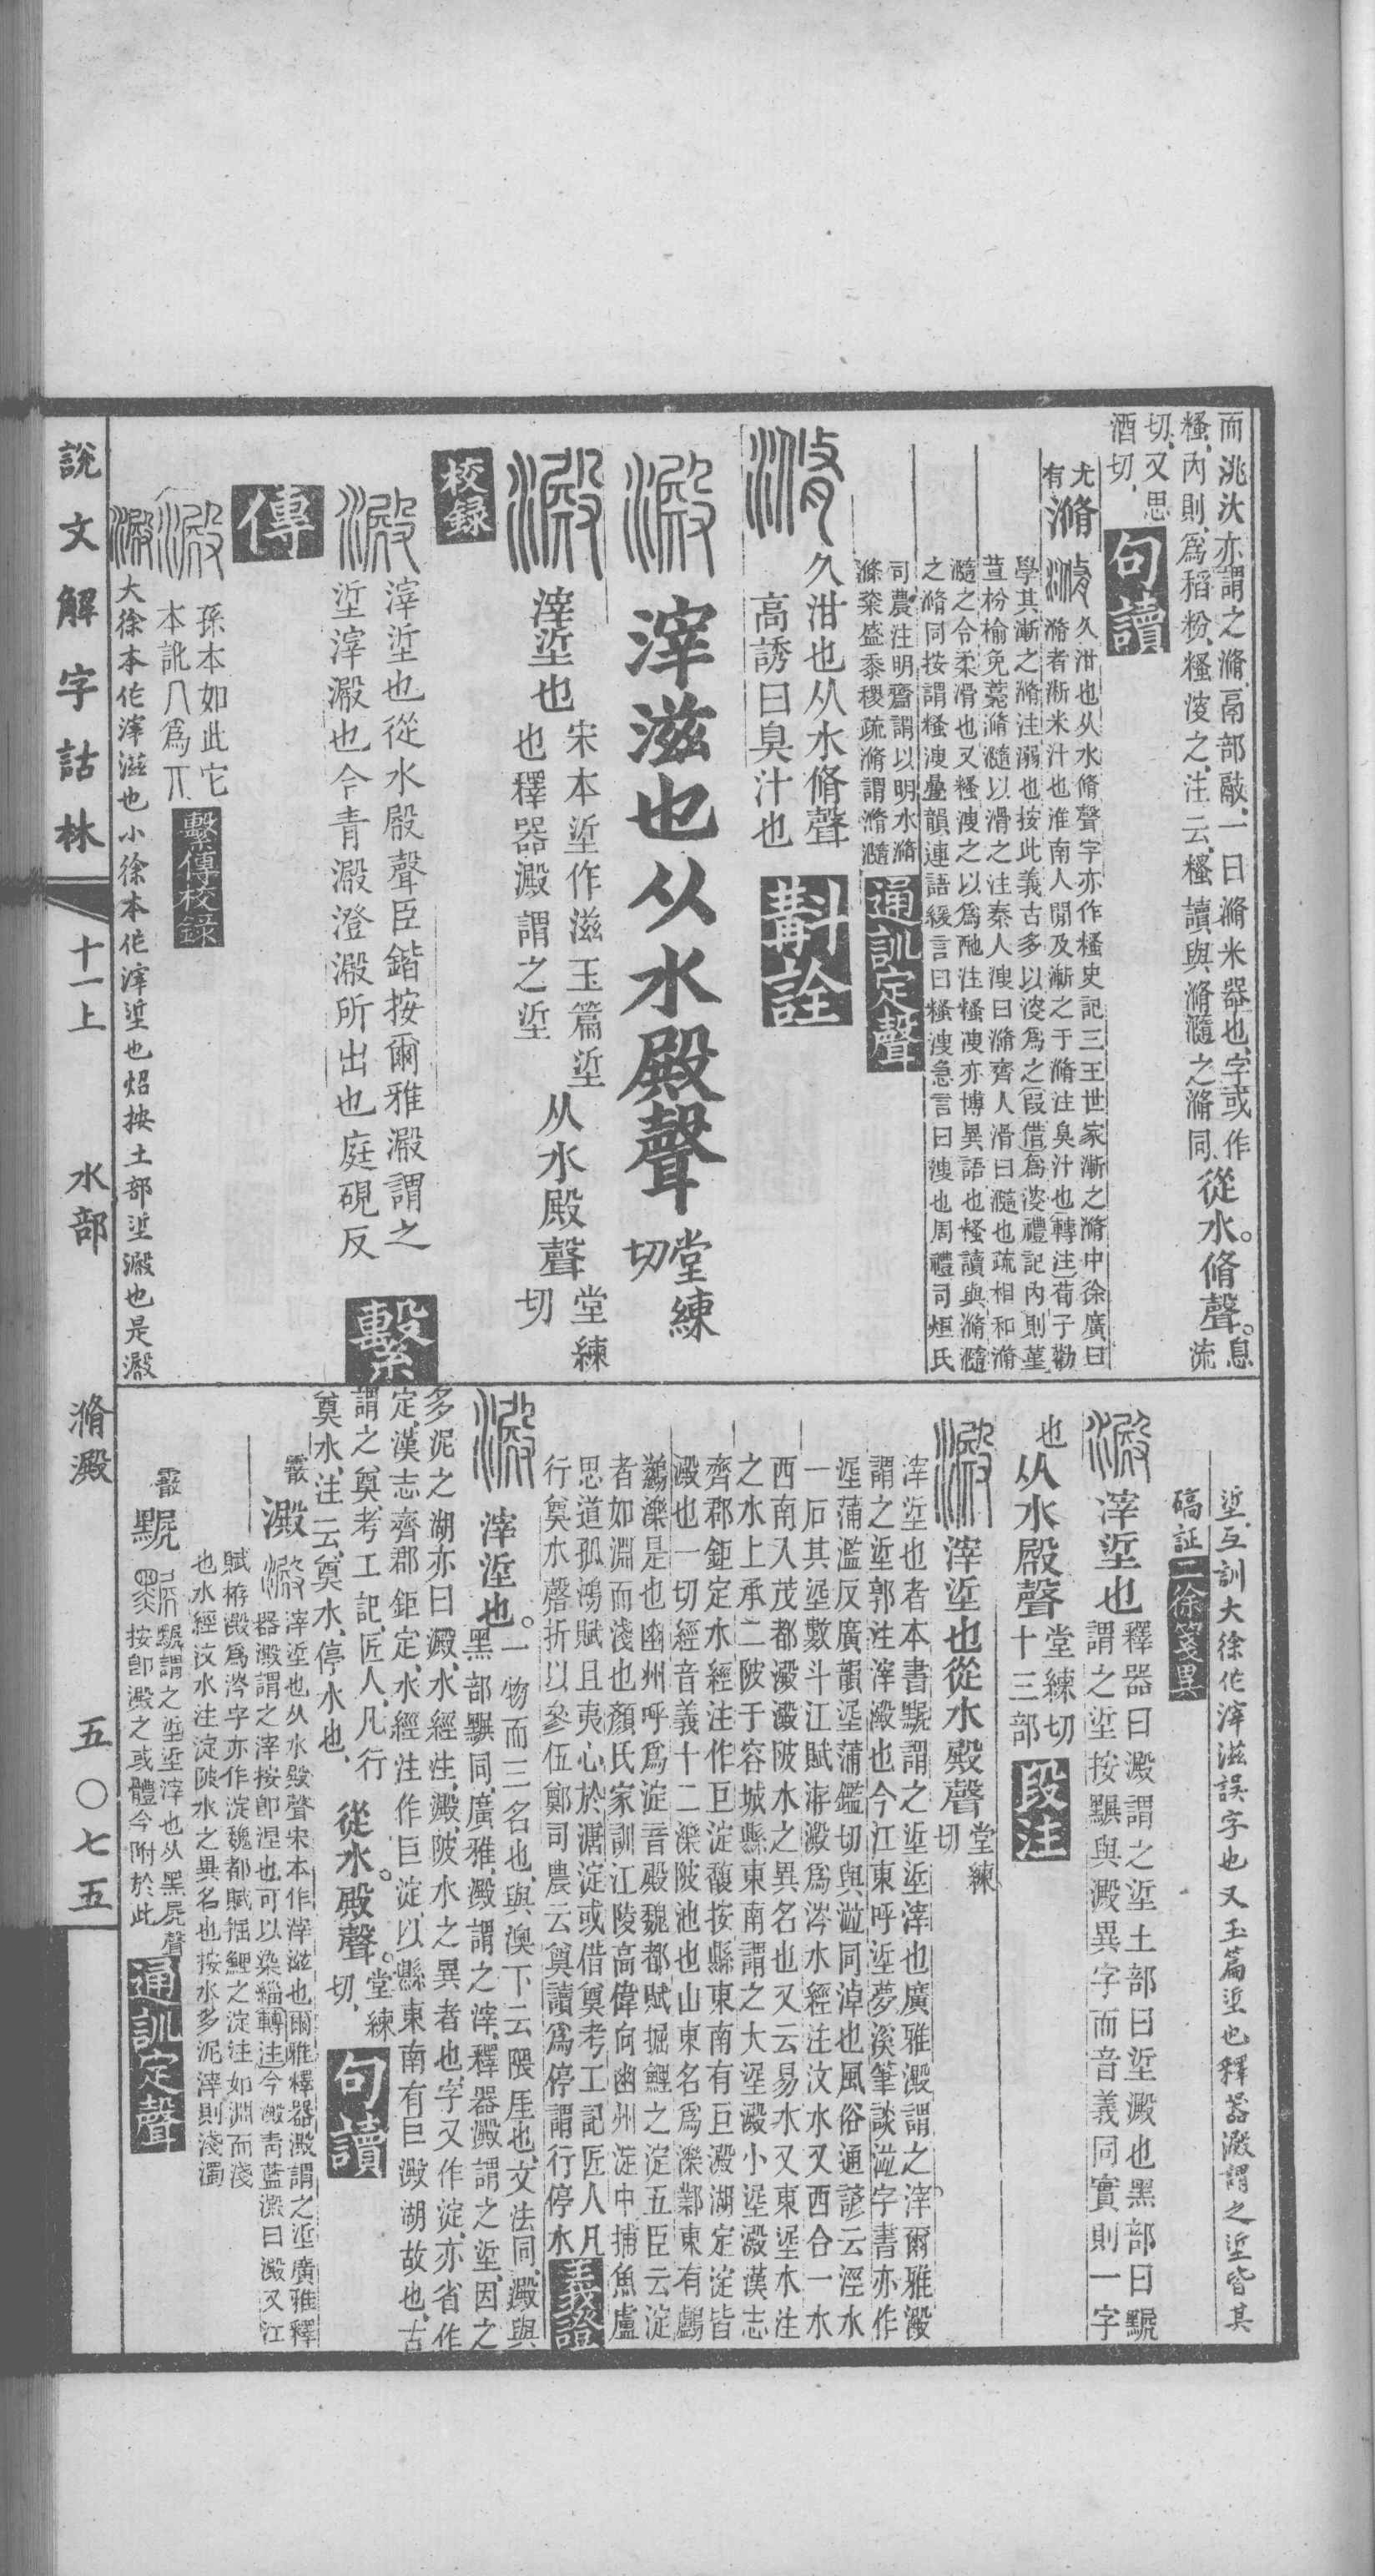 而洮汏亦謂之滫鬲部䰞一曰滫米器也字或作
糔內則爲稻粉糔溲之注云糔讀與滫瀡之滫同從水脩聲息流
切又思
酒切
句讀
尤有滫久泔也从水脩聲字亦作糔史記三王世家漸之滫中徐廣曰
滫者淅米汁也淮南人閒及漸之于滫注臭汁也轉注荀子勸
學其漸之滫注溺也按此義古多以溲爲之假借爲溲禮記內則堇
荁枌榆免薧滫瀡以滑之注秦人溲曰滫齊人滑曰瀡也疏相和滫
瀡之令柔滑也又糔溲之以爲酏注糔溲亦博異語也糔讀與滫瀡
之滫同按謂糔溲疊韻連語緩言曰糔溲急言曰溲也周禮司烜氏
司農注明齍謂以明水滫
滌粢盛黍稷疏滫謂滫瀡
通訓定聲
久泔也从水脩聲
高誘曰臭汁也
斠詮
澱滓滋也从水殿聲堂練切
澱滓垽也宋本垽作滋玉篇垽
也釋器澱謂之垽
从水殿聲堂練切
校録
澱滓垽也從水殿聲臣鍇按爾雅澱謂之
垽滓澱也今青澱澄澱所出也庭硯反
繫
傳
澱孫本如此它
本訛八爲丌
繫傳校録
澱大徐本作滓滋也小徐本作滓垽也炤按土部垽澱也是澱
垽互訓大徐作滓滋誤字也又玉篇垽也釋器澱謂之垽皆其
碻証
二徐箋異
澱滓垽也釋器曰澱謂之垽土部曰垽澱也黑部曰䵬
謂之垽按䵬與澱異字而音義同實則一字
也从水殿聲堂練切
十三部
段注
澱滓垽也從水殿聲堂練切
滓垽也者本書䵬謂之垽垽滓也廣雅澱謂之滓爾雅澱
謂之垽郭注滓澱也今江東呼垽夢溪筆談湴字書亦作
埿蒲濫反廣韻埿蒲鑑切與湴同淖也風俗通諺云涇水
一石其埿數斗江賦洊澱爲涔水經注汶水又西合一水
西南入茂都澱澱陂水之異名也又云易水又東埿水注
之水上承二陂于容城縣東南謂之大埿澱小埿澱漢志
齊郡鉅定水經注作巨淀馥按縣東南有巨澱湖定淀皆
澱也一切經音義十二濼陂池也山東名爲濼鄴東有鸕
鷀濼是也幽州呼爲淀音殿魏都賦掘鯉之淀五臣云淀
者如淵而淺也顏氏家訓江陵高偉向幽州淀中捕魚盧
思道孤鴻賦且夷心於溏淀或借奠考工記匠人凡
行奠水磬折以參伍鄭司農云奠讀爲停謂行停水
義證
澱滓垽也一物而三名也與澳下云隈厓也文法同澱與
黑部䵬同廣雅澱謂之滓釋器澱謂之垽因之
多泥之湖亦曰澱水經注澱陂水之異者也字又作淀亦省作
定漢志齊郡鉅定水經注作巨淀以縣東南有巨澱湖故也古
謂之奠考工記匠人凡行
奠水注云奠水停水也
從水殿聲堂練切
句讀
澱滓垽也从水殿聲宋本作滓滋也爾雅釋器澱謂之垽廣雅釋
器澱謂之滓按卽涅也可以染緇轉注今澱靑藍澱曰澱又江
賦栫澱爲涔字亦作淀魏都賦掘鯉之淀注如淵而淺
也水經汶水注淀陂水之異名也按水多泥滓則淺濁
䵬䵬謂之垽垽滓也从黑𡱂聲
按卽澱之或體今附於此
通訓定聲
說文解字詁林 十一上 水部 滫澱 五〇七五